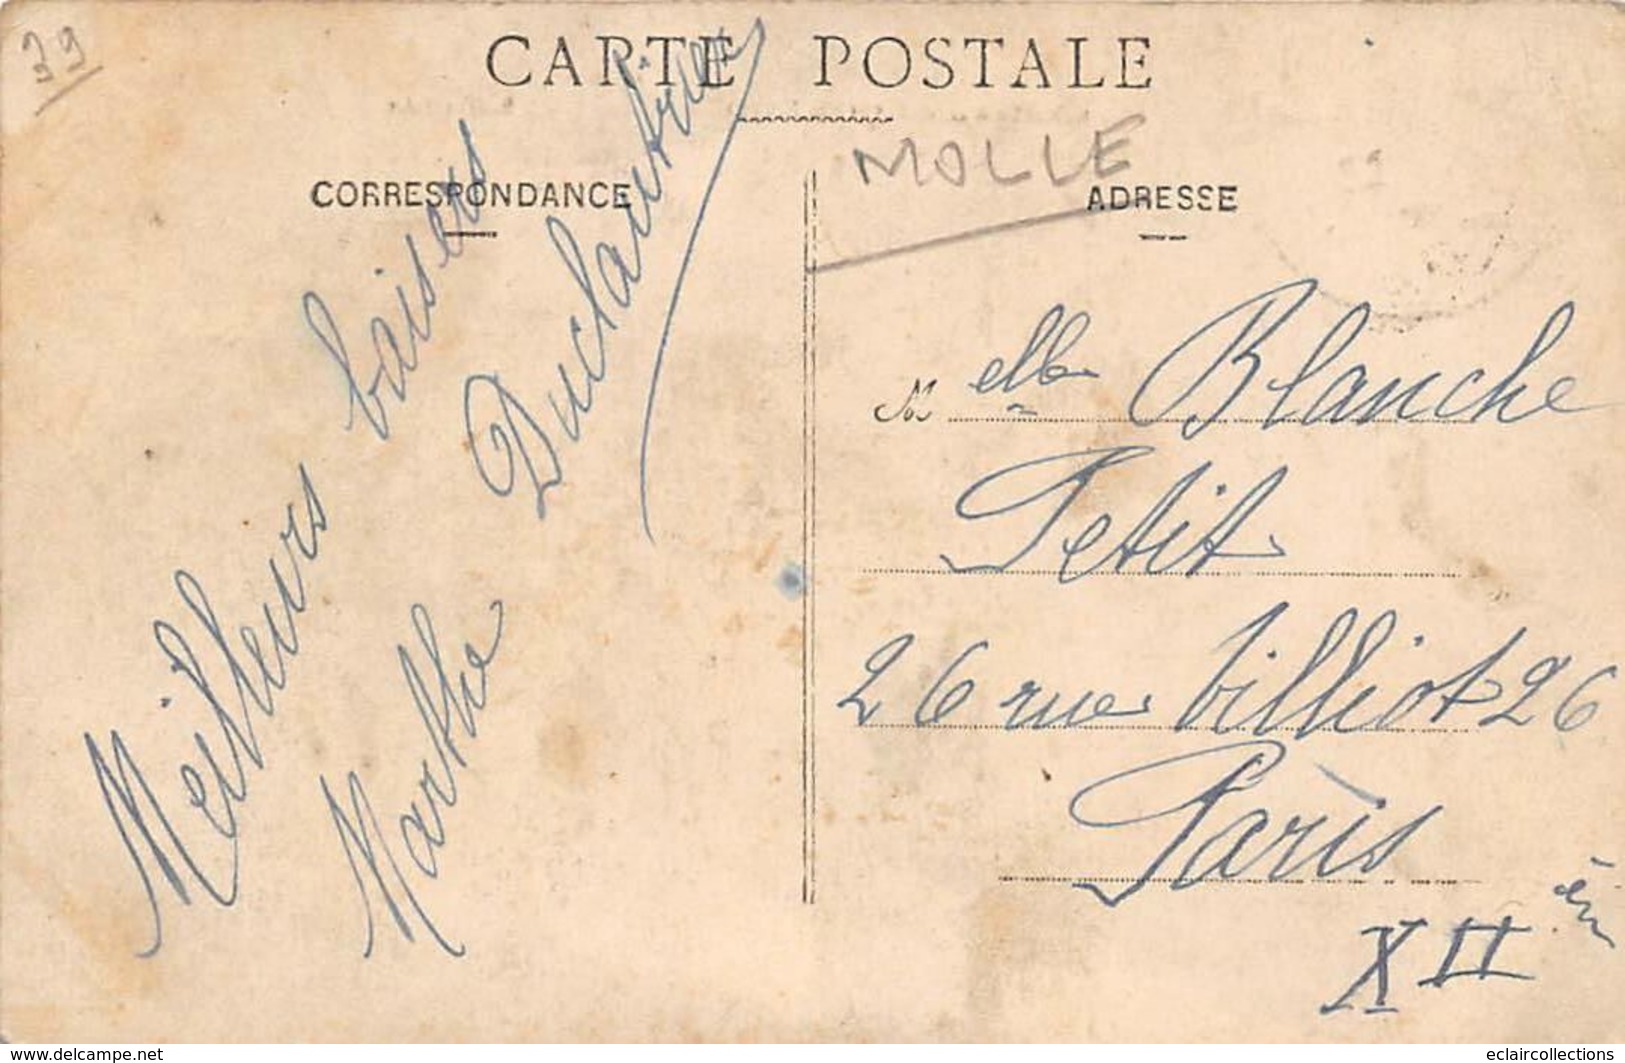 39
CARTE POSTALE
MOLLE
CORRESPONDANCE
ADRESSE
Meilleurs baisers
Marthe
Melle Blanche
Petit
26 rue billiot 26
Paris
XII èm
www.delcampe.net
eclaircollections